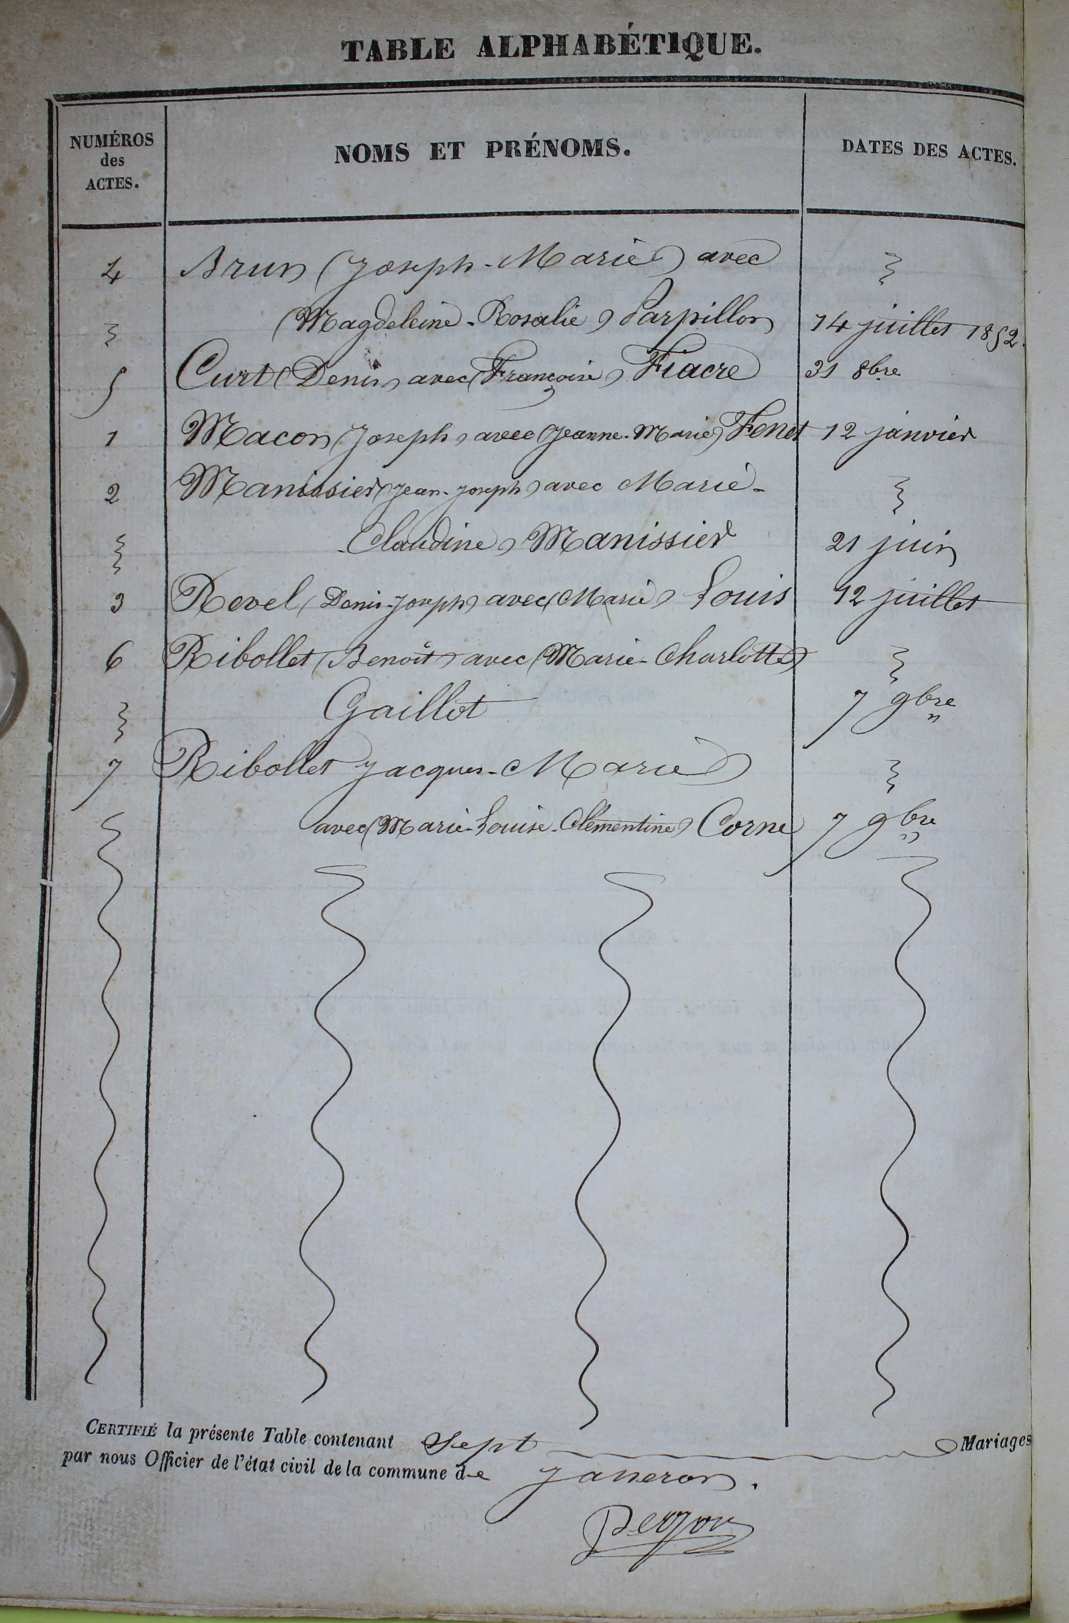 TABLE ALPHABÉTIQUE.
NUMÉROS des ACTES. NOMS ET PRÉNOMS. DATES DES ACTES.
4 Brun (Joseph-Marie) avec
(Magdeleine-Rosalie) Parpillon 14 juillet 1852.
5 Curt (Denis) avec (Françoise) Fiacre 31 8bre
1 Macon (Joseph) avec (Jeanne-Marie) Fenet 12 janvier
2 Manissier (Jean-Joseph) avec Marie-
Claudine) Manissier 21 juin
3 Revel (Denis-Joseph) avec (Marie) Louis 12 juillet
6 Ribollet (Benoît) avec (Marie-Charlotte)
Gaillot 7 9bre
7 Ribollet Jacques-Marie)
avec (Marie-Louise-Clémentine) Corne 7 9bre
CERTIFIÉ la présente Table contenant Sept Mariages
par nous Officier de l'état civil de la commune de Janneron.